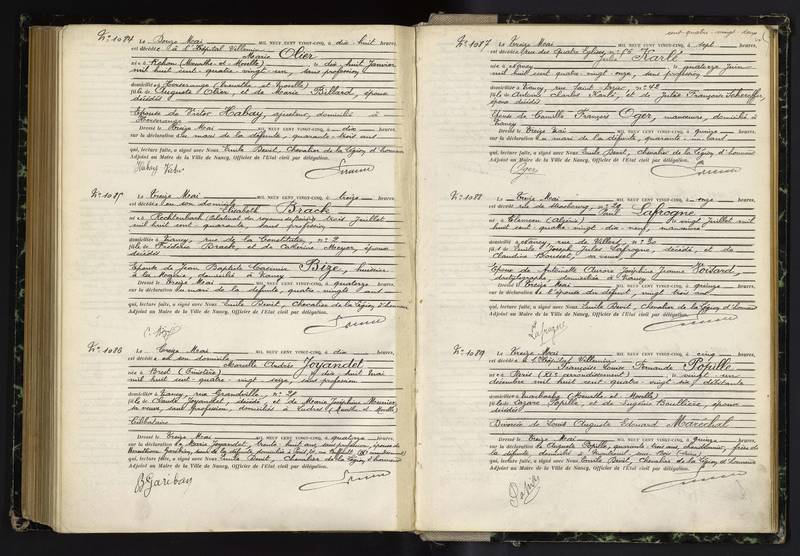 N° 1084 Le Treize Mai MIL NEUF CENT VINGT-CINQ, à dix huit heures,
est décédée à l'Hôpital Villemin
Marie Olier
née à Rehon (Meurthe et Moselle), le dix huit Janvier
mil huit cent quatre-vingt-un, sans profession
domiciliée à Herserange (Meurthe et Moselle)
fille de Auguste Olier, et de Marie Billard, époux
décédés
Epouse de Victor Habay, ajusteur, domicilié à
Herserange
Dressé le Treize Mai MIL NEUF CENT VINGT-CINQ, à dix heures,
sur la déclaration du mari de la défunte, quarante-trois ans
qui, lecture faite, a signé avec Nous Emile Benit, Chevalier de la Légion d'honneur
Adjoint au Maire de la Ville de Nancy, Officier de l'Etat civil par délégation.
Habay Victor
N° 1085 Le Treize Mai MIL NEUF CENT VINGT-CINQ, à treize heures,
est décédée en son domicile
Elisabeth Brack
née à Rechtenbach (Palatinat du royaume de Bavière) trois Juillet
mil huit cent quarante, sans profession
domiciliée à Nancy, rue de la Constitution, n° 2
fille de Frédéric Brack, et de Catherine Meyer, époux
décédés
Epouse de Jean Baptiste Casimir Bize, huissier
à la Mairie, domicilié à Nancy
Dressé le Treize Mai MIL NEUF CENT VINGT-CINQ, à quatorze heures,
sur la déclaration du mari de la défunte, quatre-vingts ans
qui, lecture faite, a signé avec Nous Emile Benit, Chevalier de la Légion d'honneur
Adjoint au Maire de la Ville de Nancy, Officier de l'Etat civil par délégation.
N° 1086 Le Treize Mai MIL NEUF CENT VINGT-CINQ, à dix heures,
est décédée en son domicile
Marcelle Andrée Joyandet
née à Brest (Finistère) le dix huit Mai
mil huit cent quatre-vingt seize, sans profession
domiciliée à Nancy, rue Grandville, n° 20
fille de Claude Joyandet, décédé, et de Marie Joséphine Meunier,
sa veuve, sans profession, domiciliée à Ludres (Meurthe et Moselle)
Célibataire
Dressé le Treize Mai MIL NEUF CENT VINGT-CINQ, à quatorze heures,
sur la déclaration de Marie Joyandet, trente huit ans, sans profession, épouse de
Garibian, soeur de la défunte, domiciliée à Paris
qui, lecture faite, a signé avec Nous Emile Benit, Chevalier de la Légion d'honneur
Adjoint au Maire de la Ville de Nancy, Officier de l'Etat civil par délégation.
Garibian
cent-quatre-vingt-deux
N° 1087 Le Treize Mai MIL NEUF CENT VINGT-CINQ, à sept heures,
est décédée rue des Quatre Eglises, n° 65
Julie Karlé
née à Nancy le quatorze Juin
mil huit cent quatre-vingt-onze, sans profession
domiciliée à Nancy, rue Saint n° 42
fille de Antoine Charles Karlé, et de Julie Françoise
époux décédés
Epouse de Camille François Oger, manoeuvre, domicilié à
Nancy
Dressé le Treize Mai MIL NEUF CENT VINGT-CINQ, à quinze heures,
sur la déclaration du mari de la défunte, quarante-un ans
qui, lecture faite, a signé avec Nous Emile Benit, Chevalier de la Légion d'honneur
Adjoint au Maire de la Ville de Nancy, Officier de l'Etat civil par délégation.
Oger
N° 1088 Le Treize Mai MIL NEUF CENT VINGT-CINQ, à onze heures,
est décédé rue de Strasbourg, n° 29
Paul Lafrogne
né à Tlemcen (Algérie) le vingt Juillet mil
huit cent quatre-vingt-dix-neuf, manoeuvre
domicilié à Nancy, rue de Villers, n° 20
fils de Emile Joseph Jules Lafrogne, décédé, et de
Claudine Bousset, sa veuve
Epoux de Antoinette Aurore Joséphine Jeanne Voisard,
dactylographe, domiciliée à Nancy
Dressé le Treize Mai MIL NEUF CENT VINGT-CINQ, à quinze heures,
sur la déclaration de l'épouse du défunt, vingt trois ans
qui, lecture faite, a signé avec Nous Emile Benit, Chevalier de la Légion d'honneur
Adjoint au Maire de la Ville de Nancy, Officier de l'Etat civil par délégation.
Lafrogne
N° 1089 Le Treize Mai MIL NEUF CENT VINGT-CINQ, à cinq heures,
est décédée à l'Hôpital Villemin
Françoise Louise Fernande Popille
née à Paris (XIe arrondissement) le vingt-un
décembre mil huit cent quatre-vingt six, débitante
domiciliée à Marbache (Meurthe et Moselle)
fille de Lazare Popille, et de Eugénie Boullière, époux
décédés
Divorcée de Louis Auguste Edouard Maréchal
Dressé le Treize Mai MIL NEUF CENT VINGT-CINQ, à quinze heures,
sur la déclaration de Popille, quarante trois ans, frère de
la défunte, domicilié à Montreuil sous Bois (Seine)
qui, lecture faite, a signé avec Nous Emile Benit, Chevalier de la Légion d'honneur
Adjoint au Maire de la Ville de Nancy, Officier de l'Etat civil par délégation.